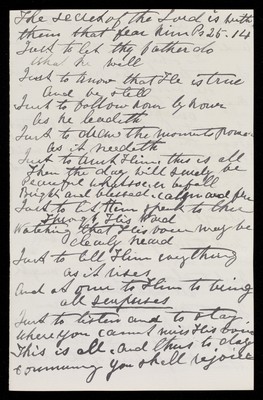 The secret of the Lord is with
them that fear him Ps 25-14
Just to let thy father do
What he will
Just to know that He is true
And be still
Just to follow hour by hour
As he leadeth
Just to draw the moments power
as it needeth
Just to trust Him, this is all
Then the day will surely be
Peaceful whatsoever befall
Bright and blessed, calm and free
Just to let Him speak to thee
Through His Word
Watching that His voice may be
clearly heard
Just to tell Him everything
as it rises
And at once to Him to bring
all surprises
Just to listen and to stay
Where you cannot miss His voice
This is all and thus to day
communing you shall rejoice